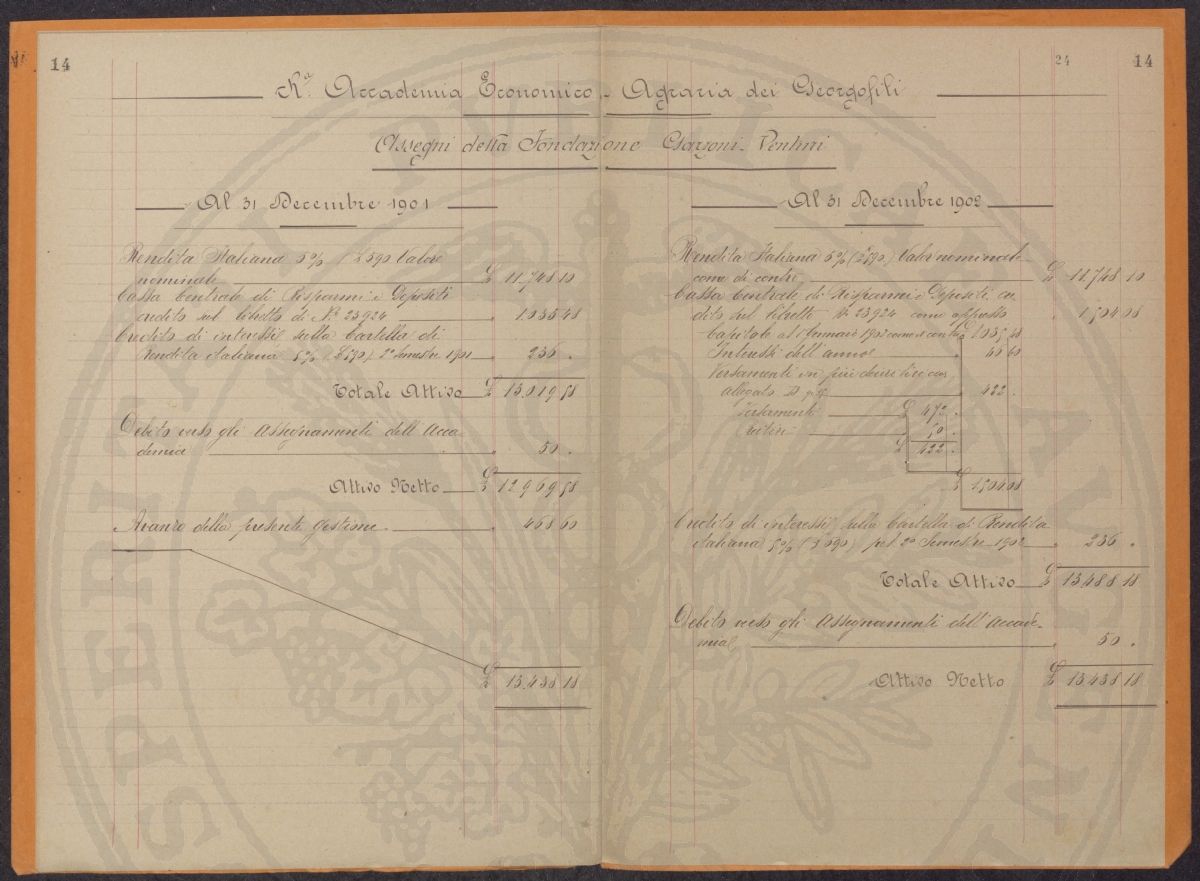 14
24 14
R.ª Accademia Economico-Agraria dei Georgofili
Assegni della Fondazione Garzoni-Venturi
Al 31 Decembre 1901
Rendita Italiana 5% (£ 590 Valore
nominale £ 11,748 10
Cassa Centrale di Risparmi e Depositi
credito sul libretto di N° 23924 " 1.035 48
Credito di interessi sulla Cartella di
Rendita italiana 5% (£ 590) 2° Semestre 1901 " 236 "
Totale Attivo £ 13.019 58
Debito verso gli Assegnamenti dell'Acca
demia " 50 "
Attivo Netto £ 12969 58
Avanzo della presente Gestione " 468 60
£ 13.438 18
Al 31 Decembre 1902
Rendita Italiana 5% (£ 590) Valor nominale
come di contro £ 11.748 10
Cassa Centrale di Risparmi e Depositi cre
dito sul libretto N° 23924 come appresso " 1,504 08
Capitale al 1° Gennaio 1902 come contro £ 1035 48
Interessi dell'anno " 46 60
Versamenti in più
allegato 422 "
Versamenti £ 472 "
ritiri " 50 "
£ 422 "
£ 1,504.08
Credito di interessi sulla Cartella di Rendita
italiana 5% (£ 590) pel 2° Semestre 1902 " 236 "
Totale Attivo £ 13.488 18
Debito verso gli Assegnamenti dell'Accade-
mia " 50 "
Attivo Netto £ 13.438 18